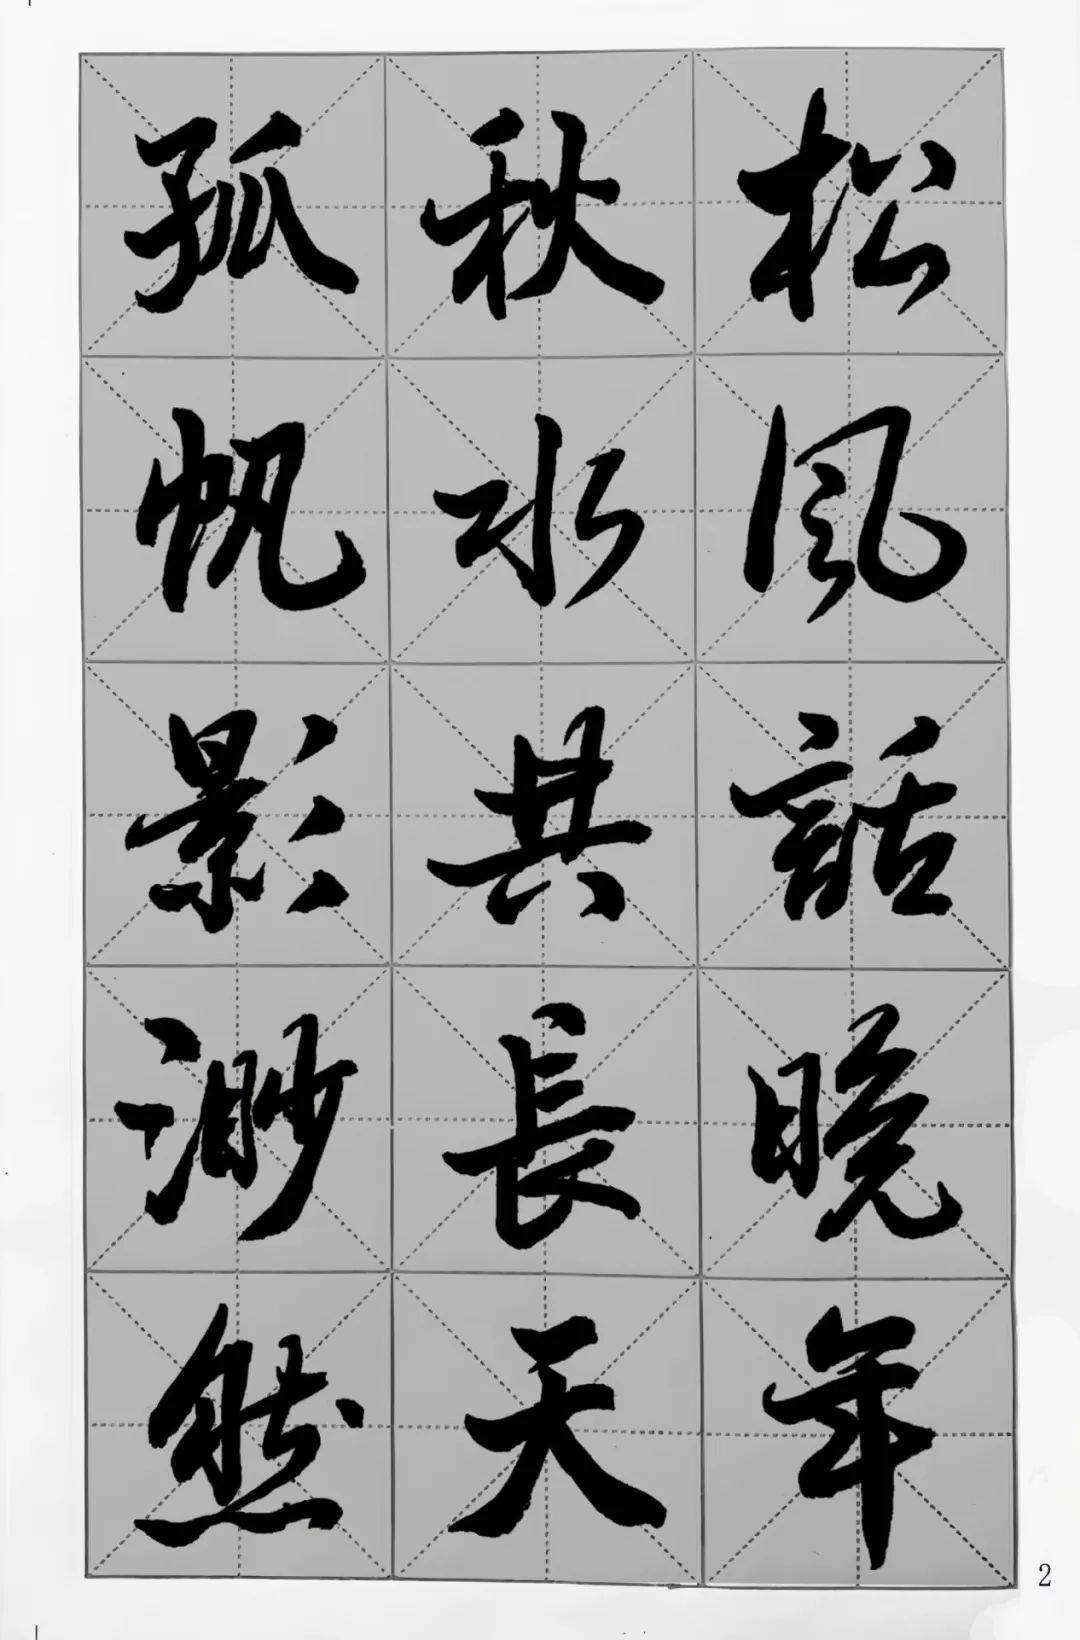 松風話晚年
秋水共長天
孤帆影渺然
2